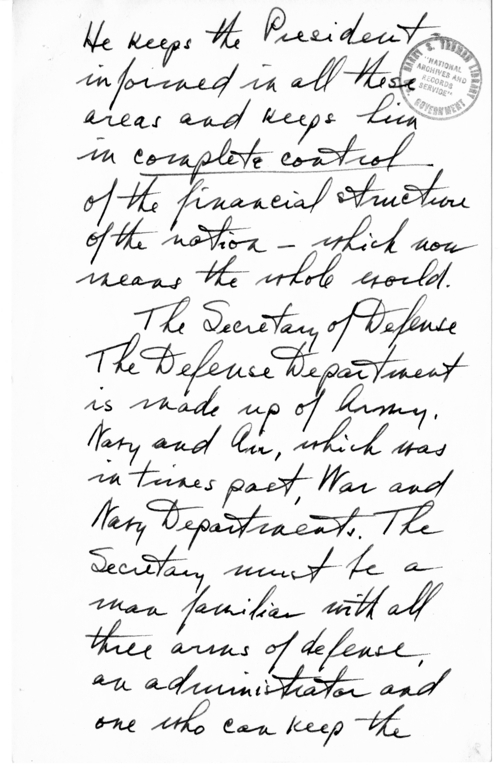 He keeps the President
informed in all these
areas and keeps him
in complete control
of the financial structure
of the nation – which now
means the whole world.
The Secretary of Defense
The Defense Department
is made up of Army.
Navy and Air, which was
in times past, War and
Navy Departments. The
Secretary must be a
man familiar with all
three arms of defense,
an administrator and
one who can keep the
HARRY S. TRUMAN LIBRARY
"NATIONAL
ARCHIVES AND
RECORDS
SERVICE"
GOVERNMENT